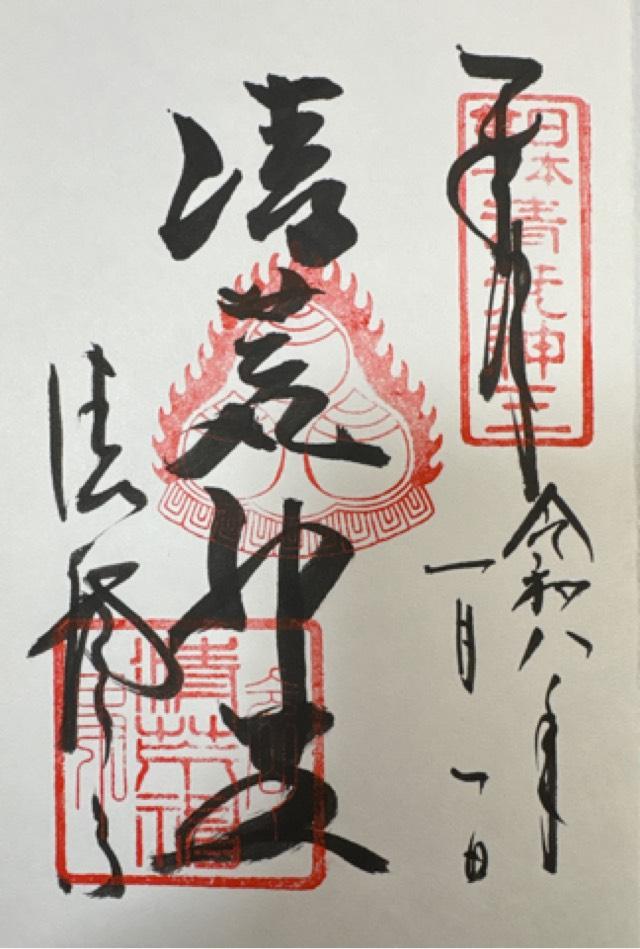 奉拝
日本
清荒神
令和八年
一月一日
清荒神
清澄寺
清荒神